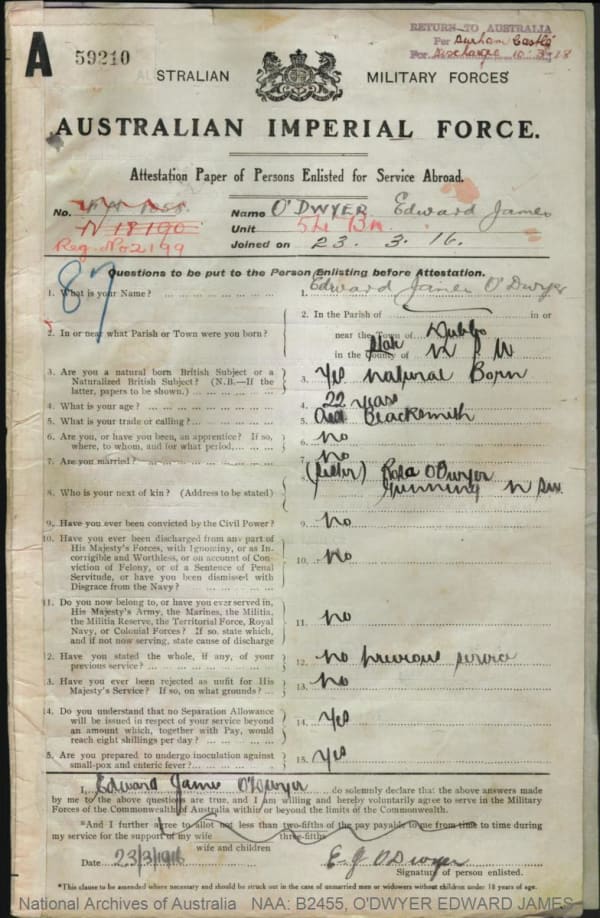 A 59210
RETURN TO AUSTRALIA
Per Durham Castle
For Discharge 10.3.18
STRALIAN MILITARY FORCES
AUSTRALIAN IMPERIAL FORCE.
Attestation Paper of Persons Enlisted for Service Abroad.
No. Name O'DWYER Edward James
N 18190 Unit
Reg. No 2199 Joined on 23. 3. 16.
87
Questions to be put to the Person Enlisting before Attestation.
1. What is your Name? 1. Edward James O'Dwyer
2. In or near what Parish or Town were you born? 2. In the Parish of in or
near the Town of Dubbo
in the County of N S W
3. Are you a natural born British Subject or a
Naturalized British Subject? (N.B.—If the
latter, papers to be shown.) 3. Yes Natural Born
4. What is your age? 4. 22 years
5. What is your trade or calling? 5. Blacksmith
6. Are you, or have you been, an apprentice? If so,
where, to whom, and for what period 6. No
7. Are you married? 7. No
8. Who is your next of kin? (Address to be stated) 8. (Sister) O'Dwyer
Gunning N SW.
9. Have you ever been convicted by the Civil Power? 9. No
10. Have you ever been discharged from any part of
His Majesty's Forces, with Ignominy, or as In-
corrigible and Worthless, or on account of Con-
viction of Felony, or of a Sentence of Penal
Servitude, or have you been dismissed with
Disgrace from the Navy? 10. No
11. Do you now belong to, or have you ever served in,
His Majesty's Army, the Marines, the Militia,
the Militia Reserve, the Territorial Force, Royal
Navy, or Colonial Forces? If so, state which,
and if not now serving, state cause of discharge 11. No
12. Have you stated the whole, if any, of your
previous service? 12. No previous service
13. Have you ever been rejected as unfit for His
Majesty's Service? If so, on what grounds? 13. No
14. Do you understand that no Separation Allowance
will be issued in respect of your service beyond
an amount which, together with Pay, would
reach eight shillings per day? 14. Yes
15. Are you prepared to undergo inoculation against
small-pox and enteric fever? 15. Yes
I, Edward James O'Dwyer do solemnly declare that the above answers made
by me to the above questions are true, and I am willing and hereby voluntarily agree to serve in the Military
Forces of the Commonwealth of Australia within or beyond the limits of the Commonwealth.
*And I further agree to allot not less than two-fifths of the pay payable to me from time to time during
three-fifths
my service for the support of my wife
wife and children
Date 23/3/1916 E. J. O'Dwyer
Signature of person enlisted.
*This clause to be amended where necessary and should be struck out in the case of unmarried men or widowers without children under 18 years of age.
National Archives of Australia NAA: B2455, O'DWYER EDWARD JAMES